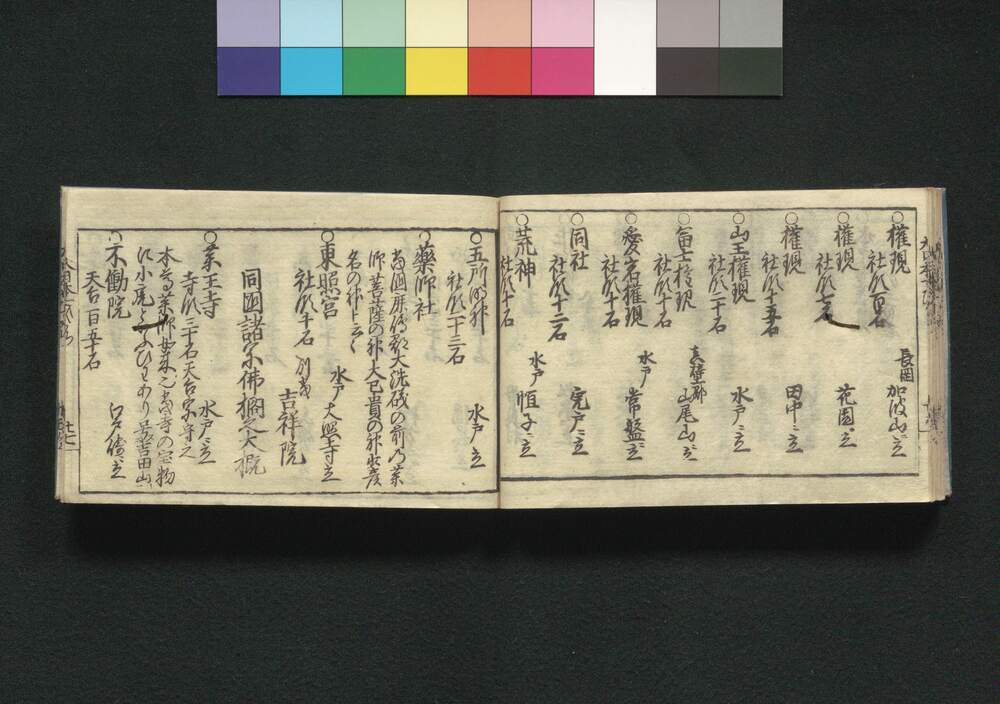 ○權現
社領百石
長岡
加波山ニ立
○權現
社領七石
花園ニ立
○權現
社領十五石
田中ニ立
○山王權現
社領二十石
水戸ニ立
○富士権現
社領十石
真壁郡
山尾山ニ立
○愛宕權現
社領十石
水戸
常盤ニ立
○同社
社領十二石
宍戸ニ立
○荒神
社領十石
水戸
○五所明神
社領二十三石
水戸ニ立
○藥師社
當國鹿嶋郡大洗磯の前乃薬
師菩薩の神大已貴の神
名の神ト云々
○東照宮
社領千石
別當
水戸大照寺立
吉祥院
同國諸宗佛閣之大概
○薬王寺
寺領三十石天台宗守之
水戸ニ立
本尊薬師如来也當寺の宝物
吉田山
○不動院
天台百五十石
江戸崎ニ立